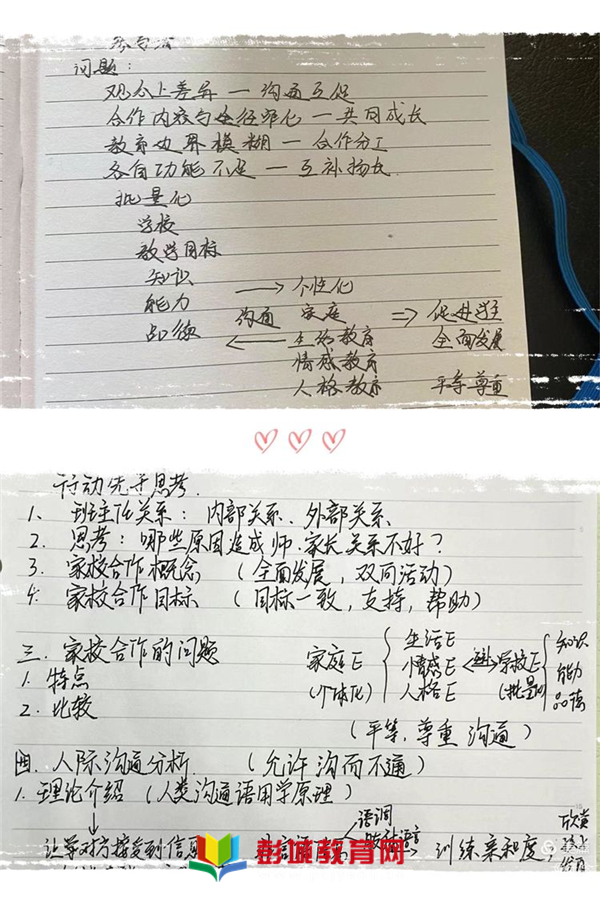 问题:
观念上差异 — 沟通互促
合作内容与途径窄化 — 共同成长
教育边界模糊 — 合作分工
各自功能不足 — 互补扬长
批量化
学校
教学目标
知识 → 个性化
能力 沟通 家庭 => 促进学生
品德 ← 生活教育 全面发展
情感教育
人格教育 平等尊重
行动先于思考.
1. 班主任关系: 内部关系. 外部关系
2. 思考: 哪些原因造成师.家长关系不好?
3. 家校合作概念 (全面发展, 双向活动)
4. 家校合作目标 (目标一致, 支持, 帮助)
三. 家校合作的问题
1. 特点
2. 比较
家庭E (个体化) { 生活E 情感E 人格E
学校E (批量) { 知识 能力 品德
(平等, 尊重 沟通)
四. 人际沟通分析 (允许沟而不通)
1. 理论介绍 (人类沟通语用学原理)
语调
肢体语言
让对方接受到信息
训练亲和度,
欣赏
彭城教育网